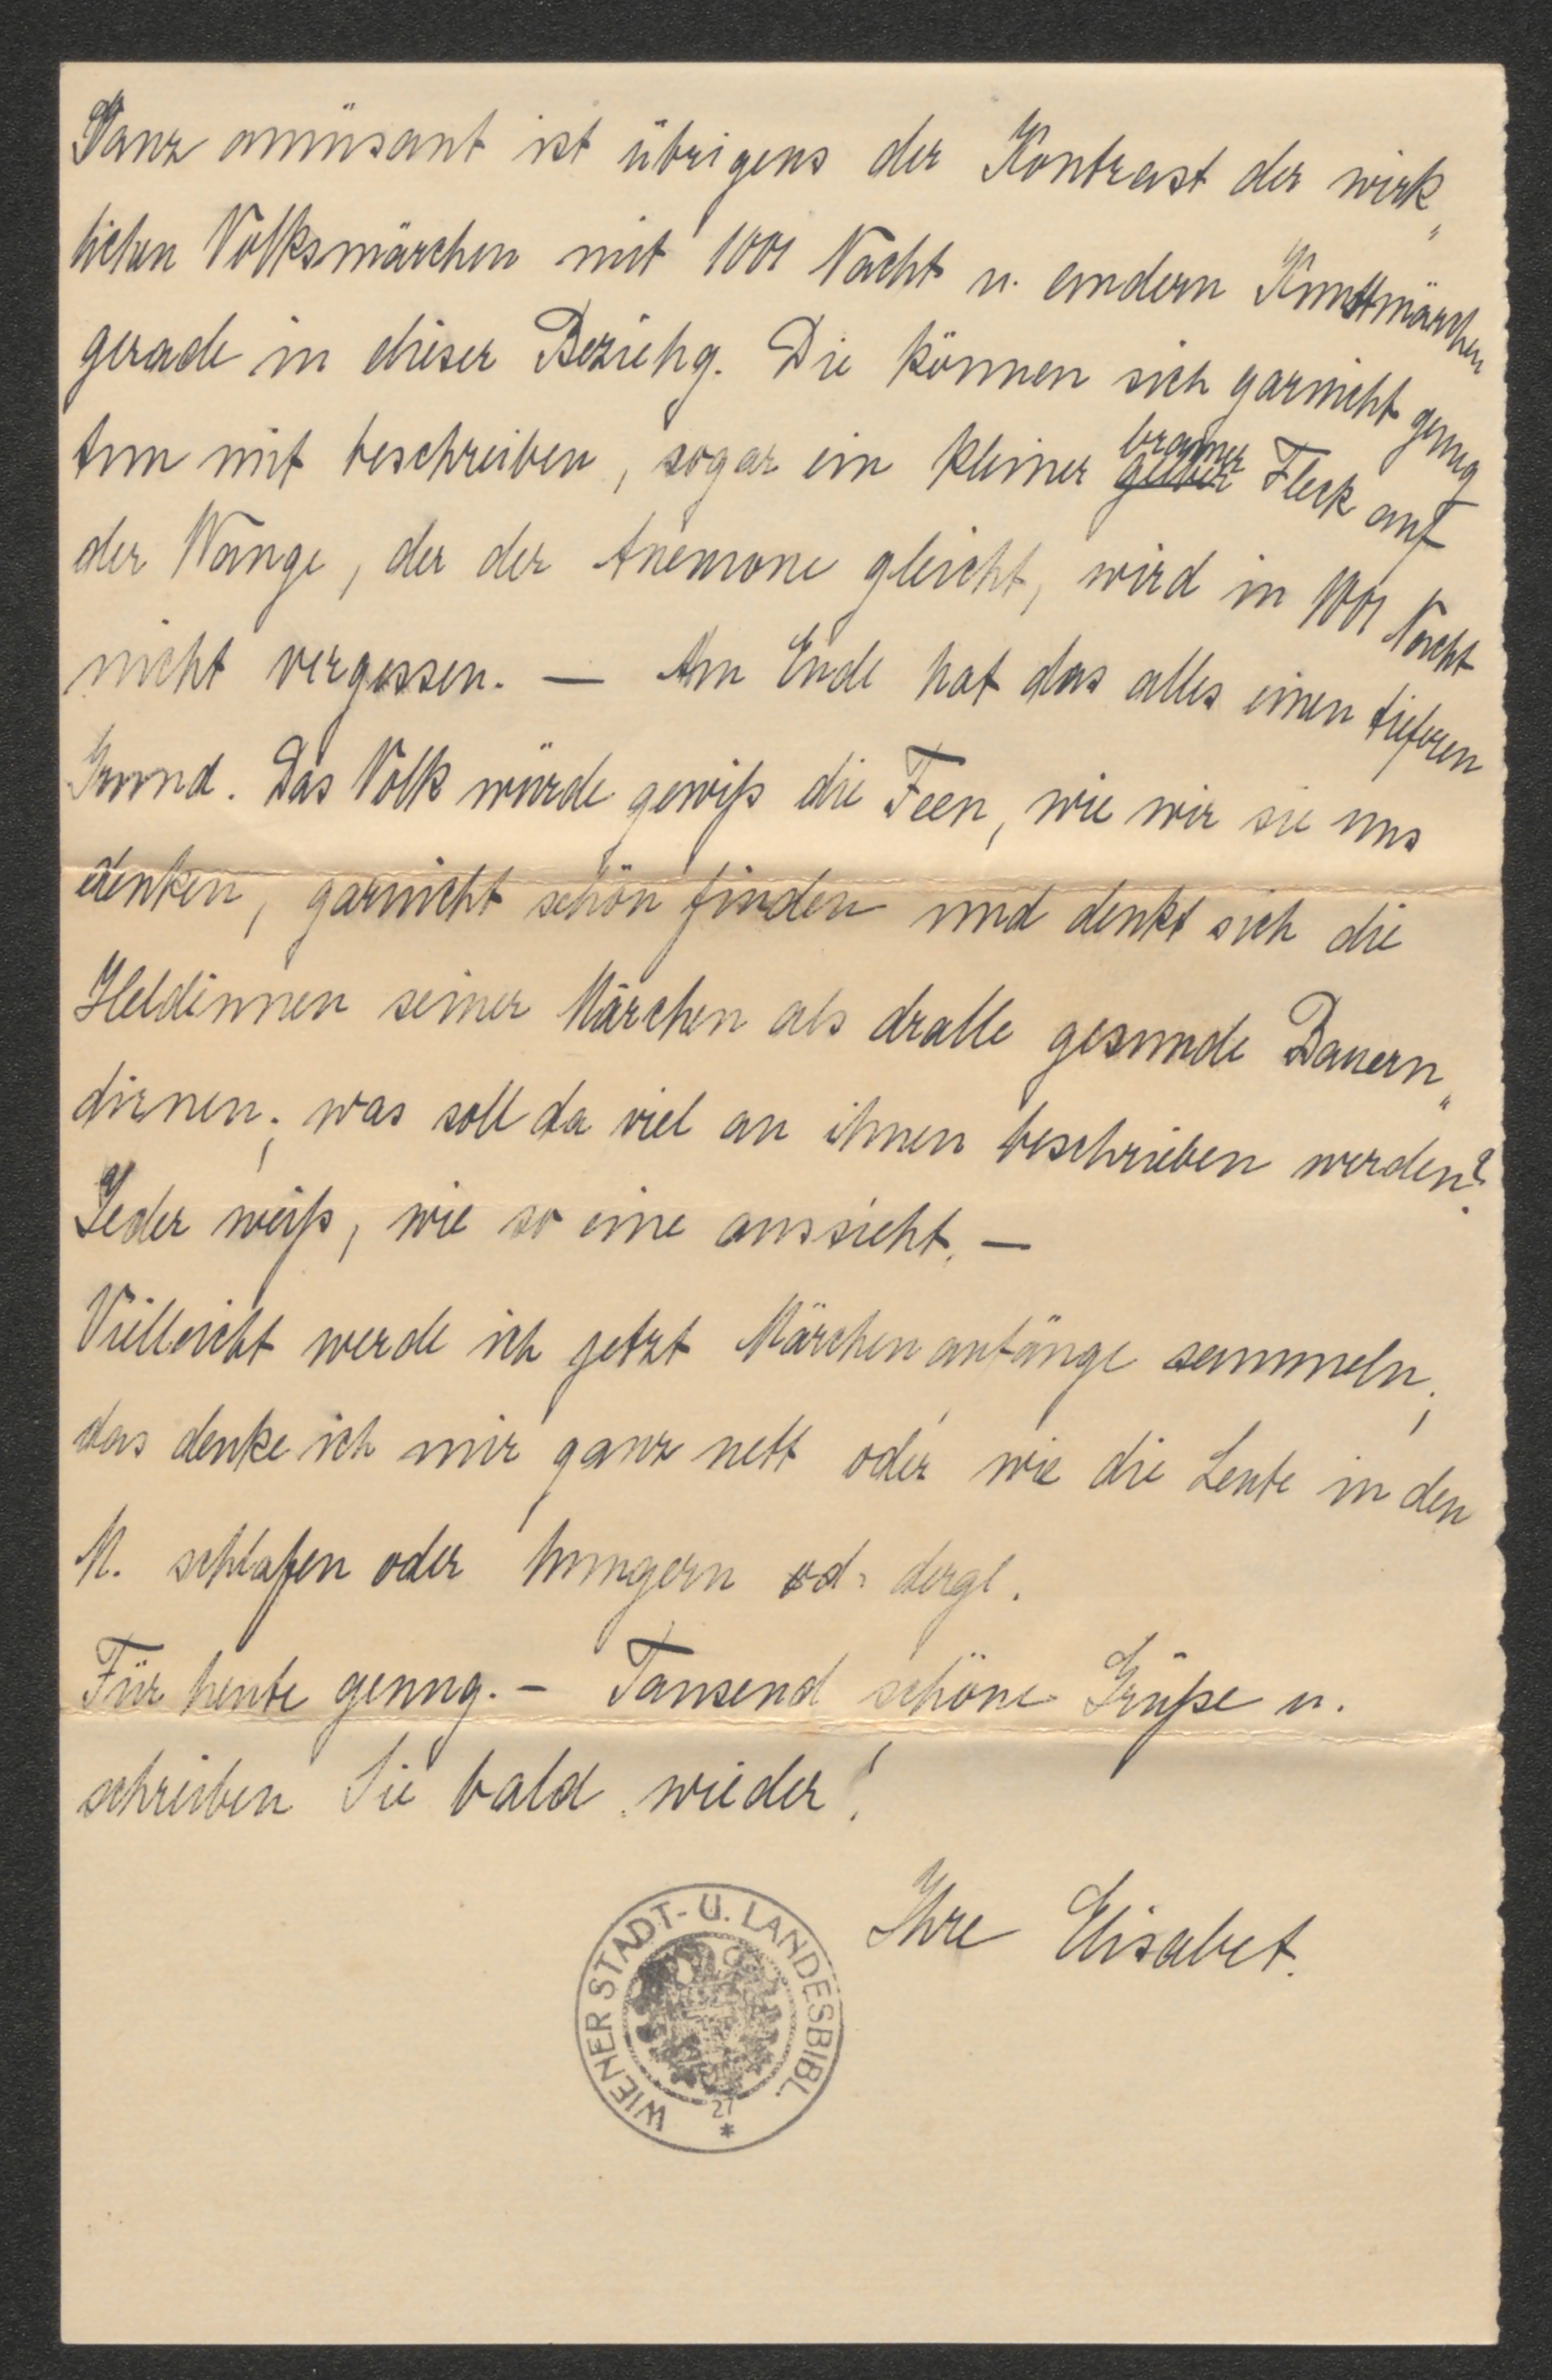 Ganz amüsant ist übrigens der Kontrast der wirk„
lichen Volksmärchen mit 1001 Nacht u. andern Kunstmärchen
gerade in dieser Beziehg. Die können sich garnicht genug
tun mit beschreiben, sogar ein kleiner ~~gelber~~ brauner Fleck auf
der Wange, der der Anemone gleicht, wird in 1001 Nacht
nicht vergessen. — Am Ende hat das alles einen tieferen
Grund. Das Volk würde gewiß die Feen, wie wir sie uns
denken, garnicht schön finden und denkt sich die
Heldinnen seiner Märchen als dralle gesunde Bauern„
dirnen; was soll da viel an ihnen beschrieben werden?
Jeder weiß, wie so eine aussieht. —
Vielleicht werde ich jetzt Märchenanfänge sammeln;
das denke ich mir ganz nett oder wie die Leute in den
M. schlafen oder hungern od. dergl.
Für heute genug. – Tausend schöne Grüße u.
schreiben Sie bald wieder!
Ihre Elisabet.
WIENER STADT- U. LANDESBIBL.
27
*